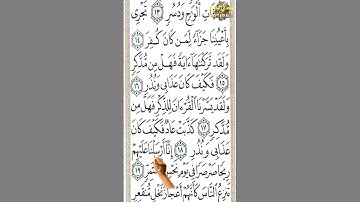 ذَاتِ أَلْوَٰحٍ وَدُسُرٍ ١٣ تَجْرِى
بِأَعْيُنِنَا جَزَآءً لِّمَن كَانَ كُفِرَ ١٤
وَلَقَد تَّرَكْنَٰهَآ ءَايَةً فَهَلْ مِن مُّدَّكِرٍ
١٥ فَكَيْفَ كَانَ عَذَابِى وَنُذُرِ ١٦
وَلَقَدْ يَسَّرْنَا ٱلْقُرْءَانَ لِلذِّكْرِ فَهَلْ مِن
مُّدَّكِرٍ ١٧ كَذَّبَتْ عَادٌ فَكَيْفَ كَانَ
عَذَابِى وَنُذُرِ ١٨ إِنَّآ أَرْسَلْنَا عَلَيْهِمْ
رِيحًا صَرْصَرًا فِى يَوْمِ نَحْسٍ مُّسْتَمِرٍّ ١٩
تَنزِعُ ٱلنَّاسَ كَأَنَّهُمْ أَعْجَازُ نَخْلٍ مُّنقَعِرٍ